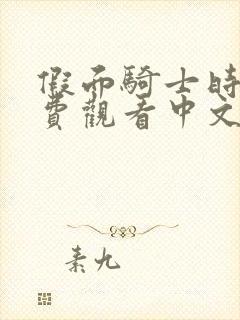 假面騎士時
費觀看中文
素九